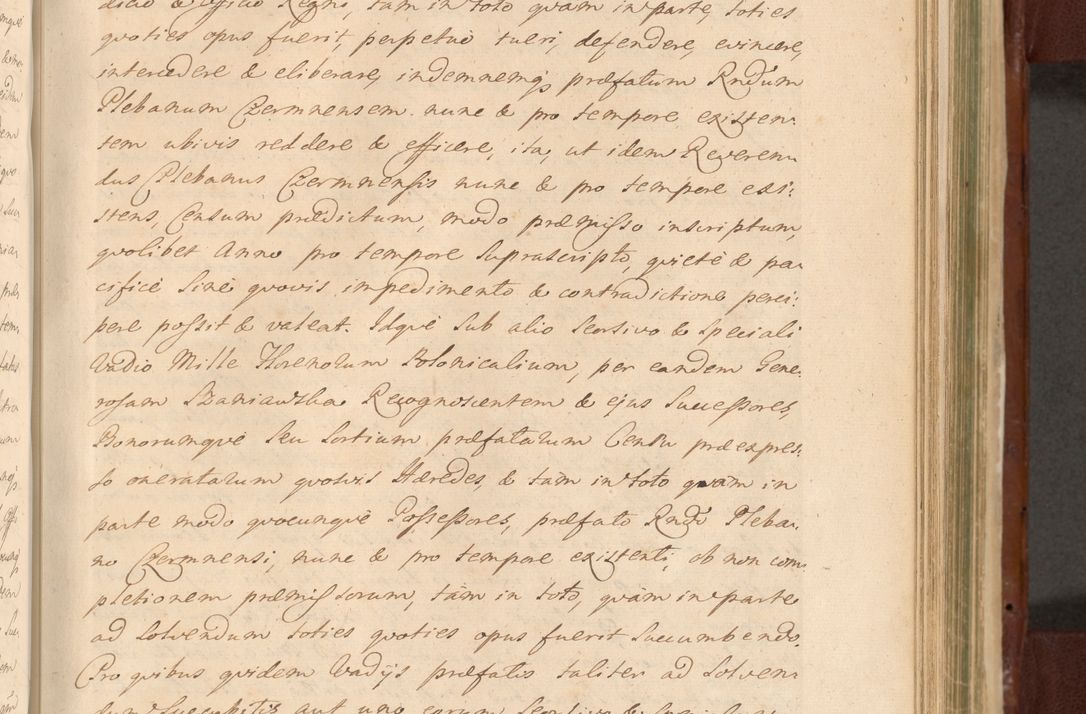 dicio & Officio Regni, tam in toto quam in parte, toties
quoties opus fuerit, perpetuo tueri, defendere, evincere,
intercedere & eliberare, indemnemq; præfatum Rndum
Plebanum Czermnensem nunc & pro tempore existen:
tem ubivis reddere & efficere, ita, ut idem Reveren
dus Plebanus Czermnensis nunc & pro tempore exi:
stens, Censum prædictum, modo præmisso inscriptum,
quolibet Anno pro tempore suprascripto, quietè & pa
cificè sinè quovis impedimento & contradictione perci:
pere possit & valeat. Idquè sub alio seorsivo & speciali
Vadio Mille Florenorum Polonicalium, per eandem Gene:
rosam Szaniawska Recognoscentem & ejus Successores,
Bonorumquè seu Sortium præfatarum Censu præexpres:
so oneratarum quovis Hæredes, & tàm in toto quàm in
parte modo quocunquè Possessores, præfato Rndo Pleba
no Czermnensi, nunc & pro tempore existenti, ob non com
pletionem præmissorum, tàm in toto, quàm in parte
ad solvendum toties quoties opus fuerit succumbendo.
Pro quibus quidem Vadijs præfatis taliter ad solven
dum succubitis aut uno eorum seorsivo &